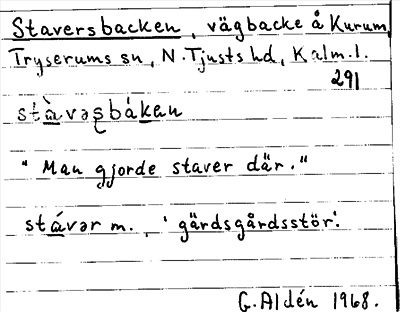 Staversbacken, vägbacke å Kurum,
Tryserums sn, N. Tjusts hd, Kalm. l.
291
stàvəʂbákan
"Man gjorde staver där."
stávər m., 'gärdsgårdsstör'.
G. Aldén 1968.